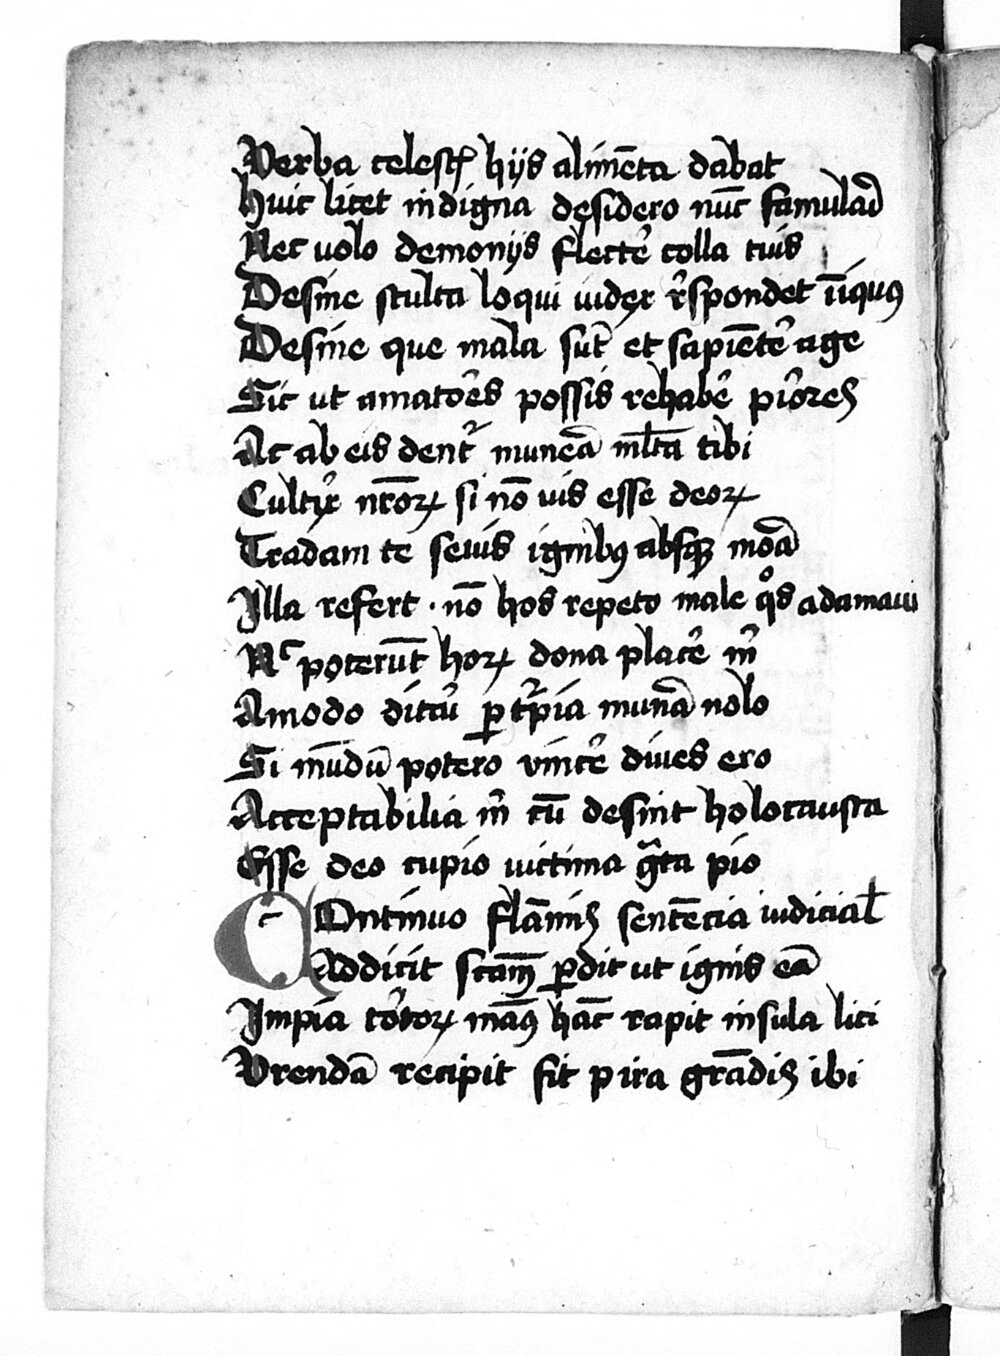 Verba celestꝭ hijs alimēta dabat
Huic licet indigna desidero nūc famulari
Nec uolo demonijs flectẽ colla tuis
Desine stulta loqui iudex respondet iniquꝰ
Desine que mala sūt et sapiētẽ age
Sic ut amatores possis rehabẽ priores
Ac ab eis dentᷣ munera ml̄ta tibi
Cultꝛix nr̄oꝝ si nō uis esse deoꝝ
Tradam te seuis ignibꝰ absqꝫ mora
Illa refert · nō hos repeto male qͦs adamaui
Nᶜ poterūt hoꝝ dona placẽ m̄
Amodo dictu ꝑ tͥpia munera nolo
Si mūdū potero vincẽ diues ero
Acceptabilia m̄ cū desint holocausta
Esse deo cupio uictima gͣta pio
COntinuo flāminis sentēcia iudicial̄
Addicit scām ꝑdit ut ignis eā
Impia toꝛtoꝝ manꝰ hāc rapit insula lici
Vrendā recipit fit pira grādis ibi